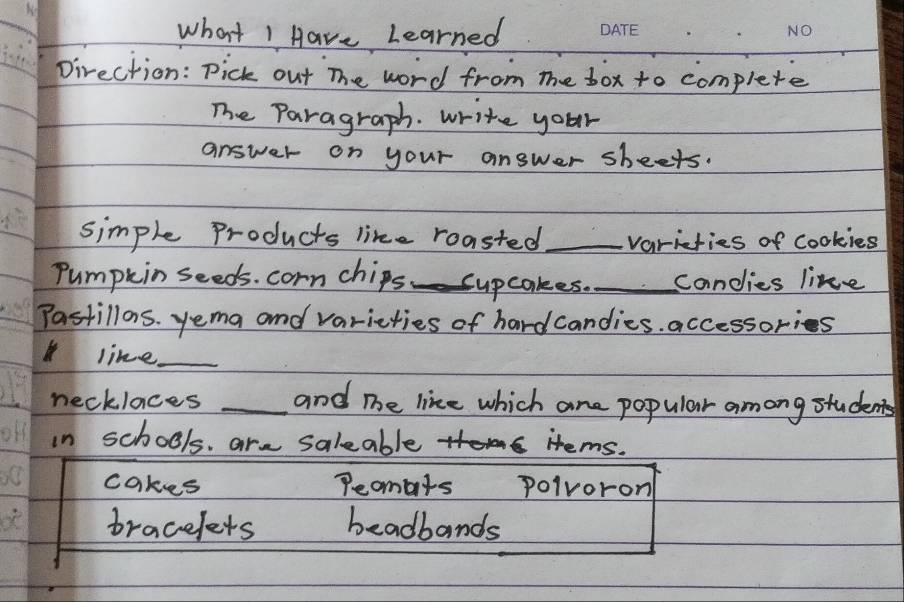 What I Have Learned
DATE NO
Direction: Pick out The word from The box to complete
The Paragraph. write your
answer on your answer sheets.
simple Products like roasted_____varieties of cookies
Pumpkin seeds. corn chips.___cupcakes._____candies like
Pastillas. yema and varieties of hard candies. accessories
like____
necklaces _____and The like which are popular among students
in schools. are saleable items.
cakes Peanuts Polvoron
bracelets headbands